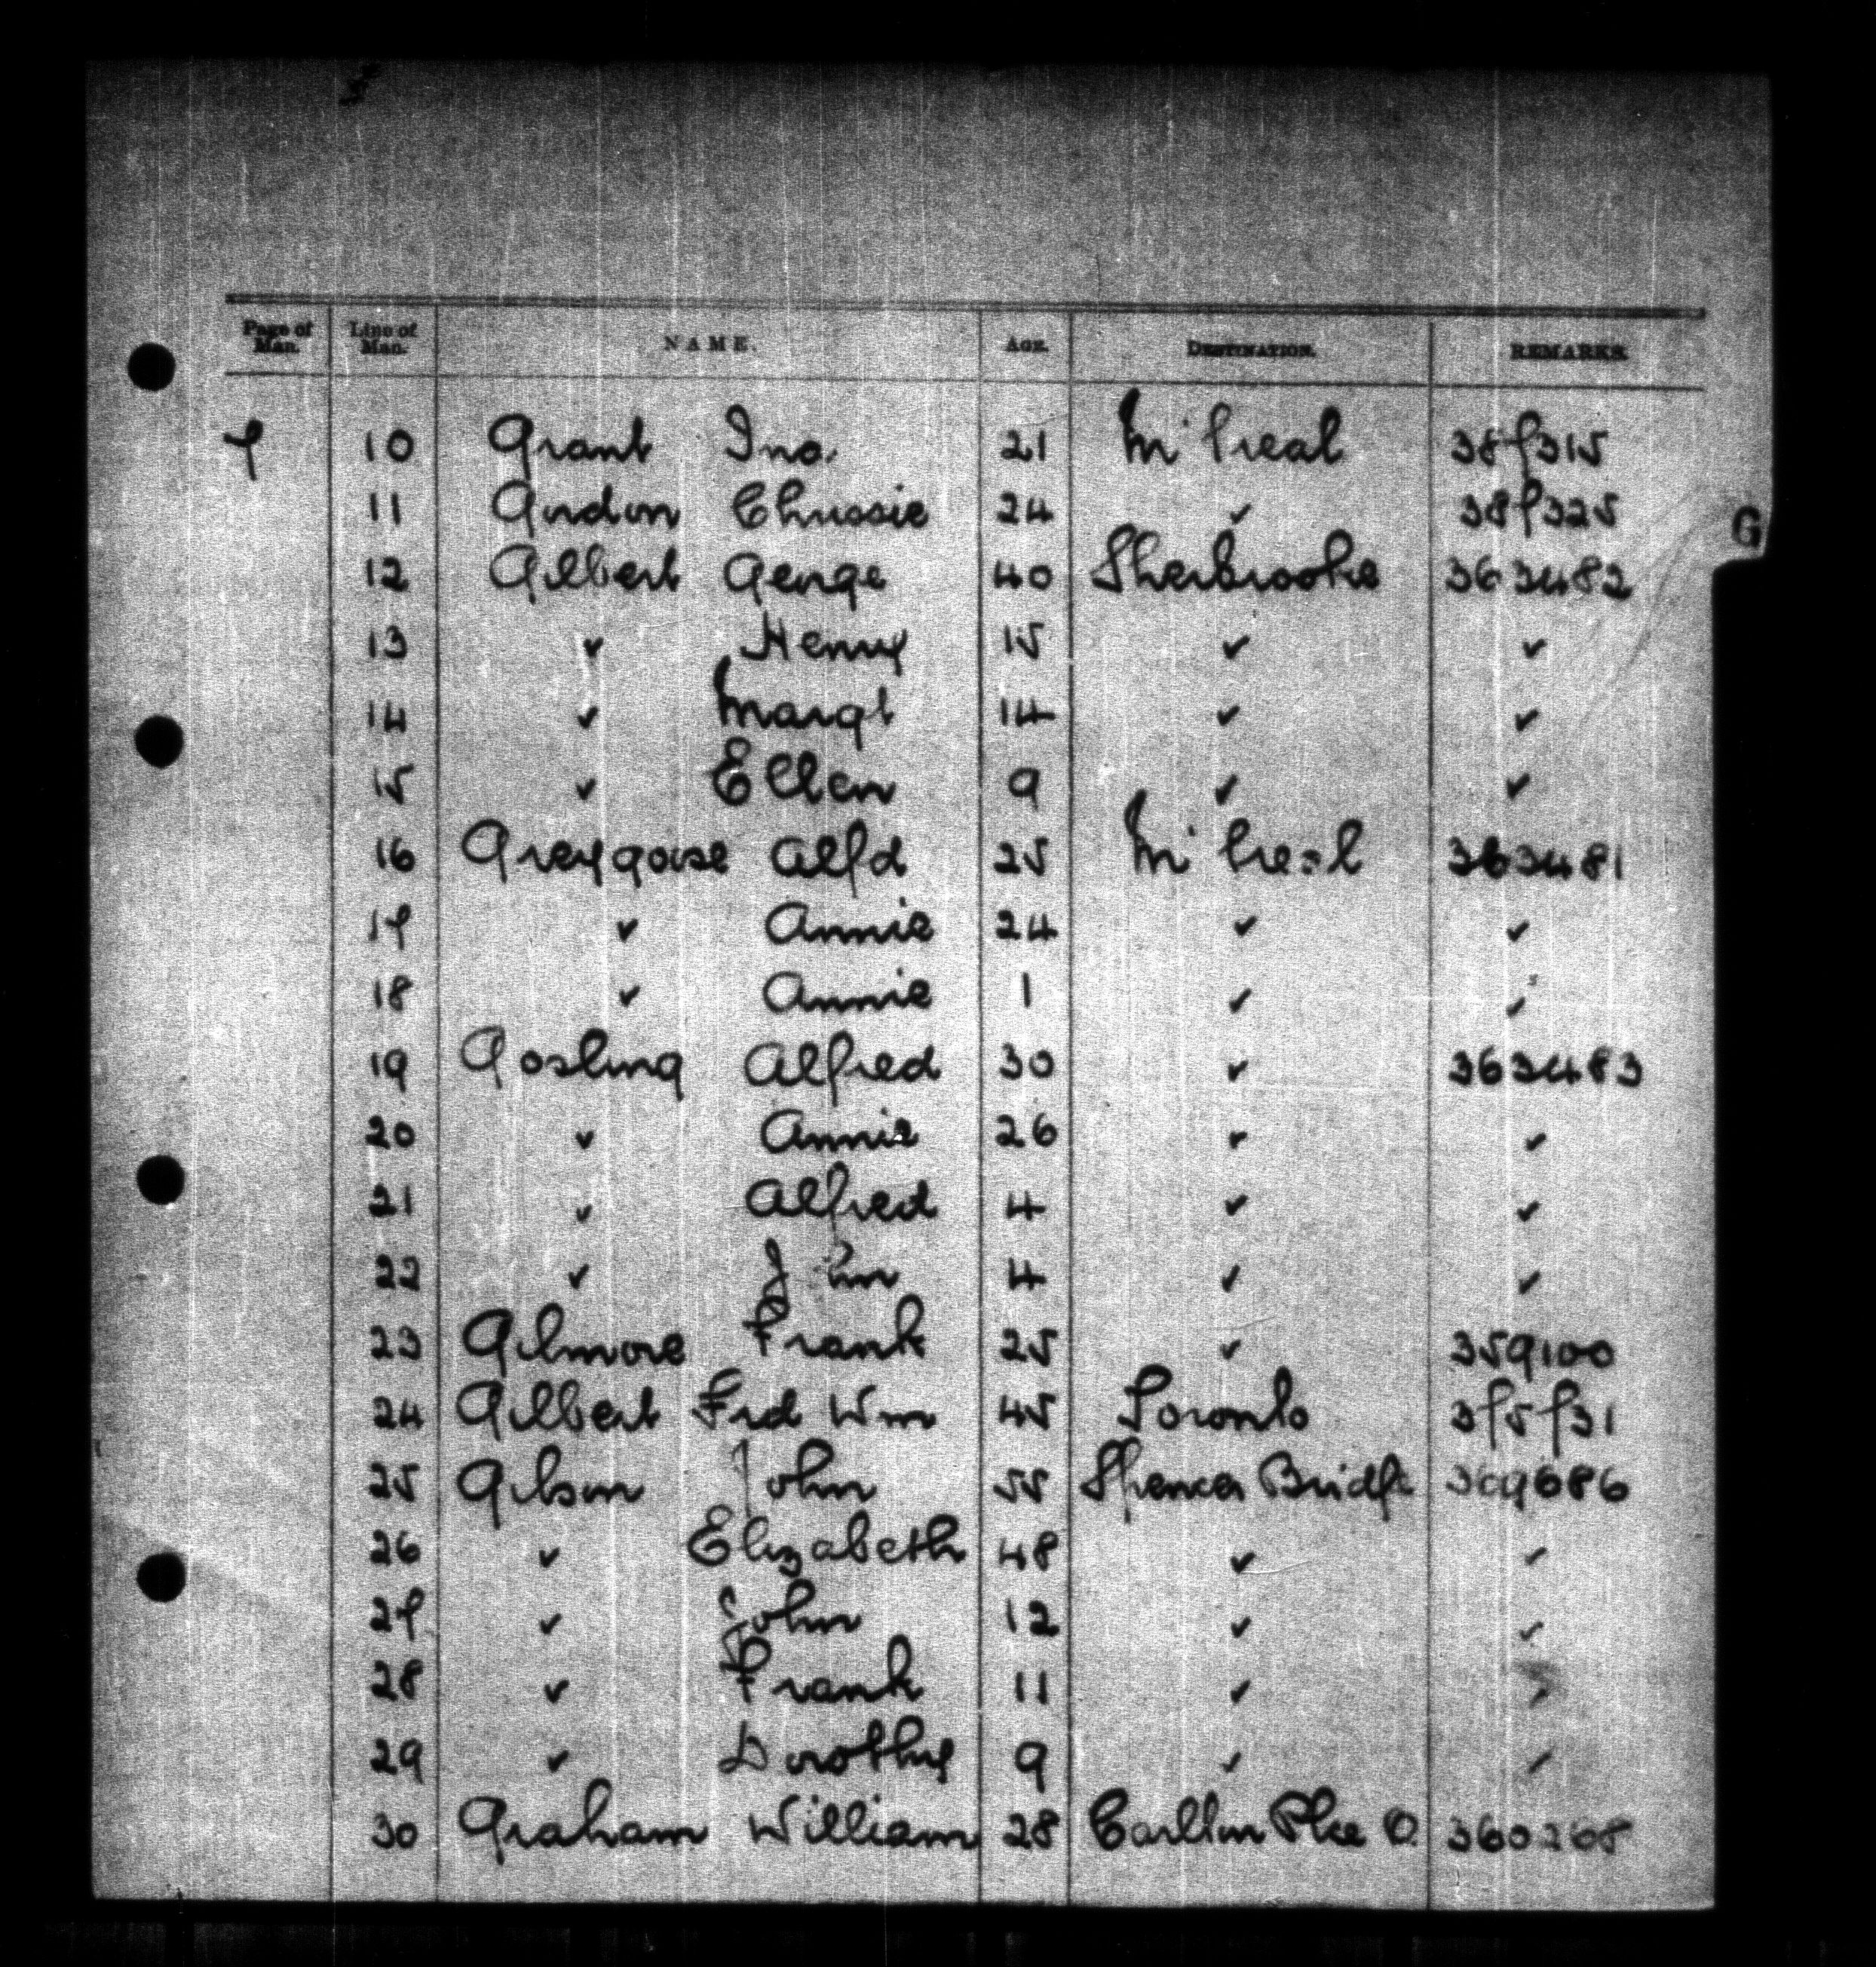 Page of Man. Line of Man. NAME. AGE. DESTINATION. REMARKS
7 10 Grant Jno. 21 M'treal 387315
11 Gordon Chrissie 24 ✓ 387325
G
12 Gilbert George 40 Sherbrooke 363482
13 ✓ Henry 15 ✓ ✓
14 ✓ Margt 14 ✓ ✓
15 ✓ Ellen 9 ✓ ✓
16 Greygoose Alfd 25 M'treal 363481
17 ✓ Annie 24 ✓ ✓
18 ✓ Annie 1 ✓ ✓
19 Gosling Alfred 30 ✓ 363483
20 ✓ Annie 26 ✓ ✓
21 ✓ Alfred 4 ✓ ✓
22 ✓ John 4 ✓ ✓
23 Gilmore Frank 25 ✓ 359100
24 Gilbert Frd Wm 45 Toronto 375731
25 Gibson John 55 Spencer Bridge 369686
26 ✓ Elizabeth 48 ✓ ✓
27 ✓ John 12 ✓ ✓
28 ✓ Frank 11 ✓ ✓
29 ✓ Dorothy 9 ✓ ✓
30 Graham William 28 Carlton Plce O. 360268